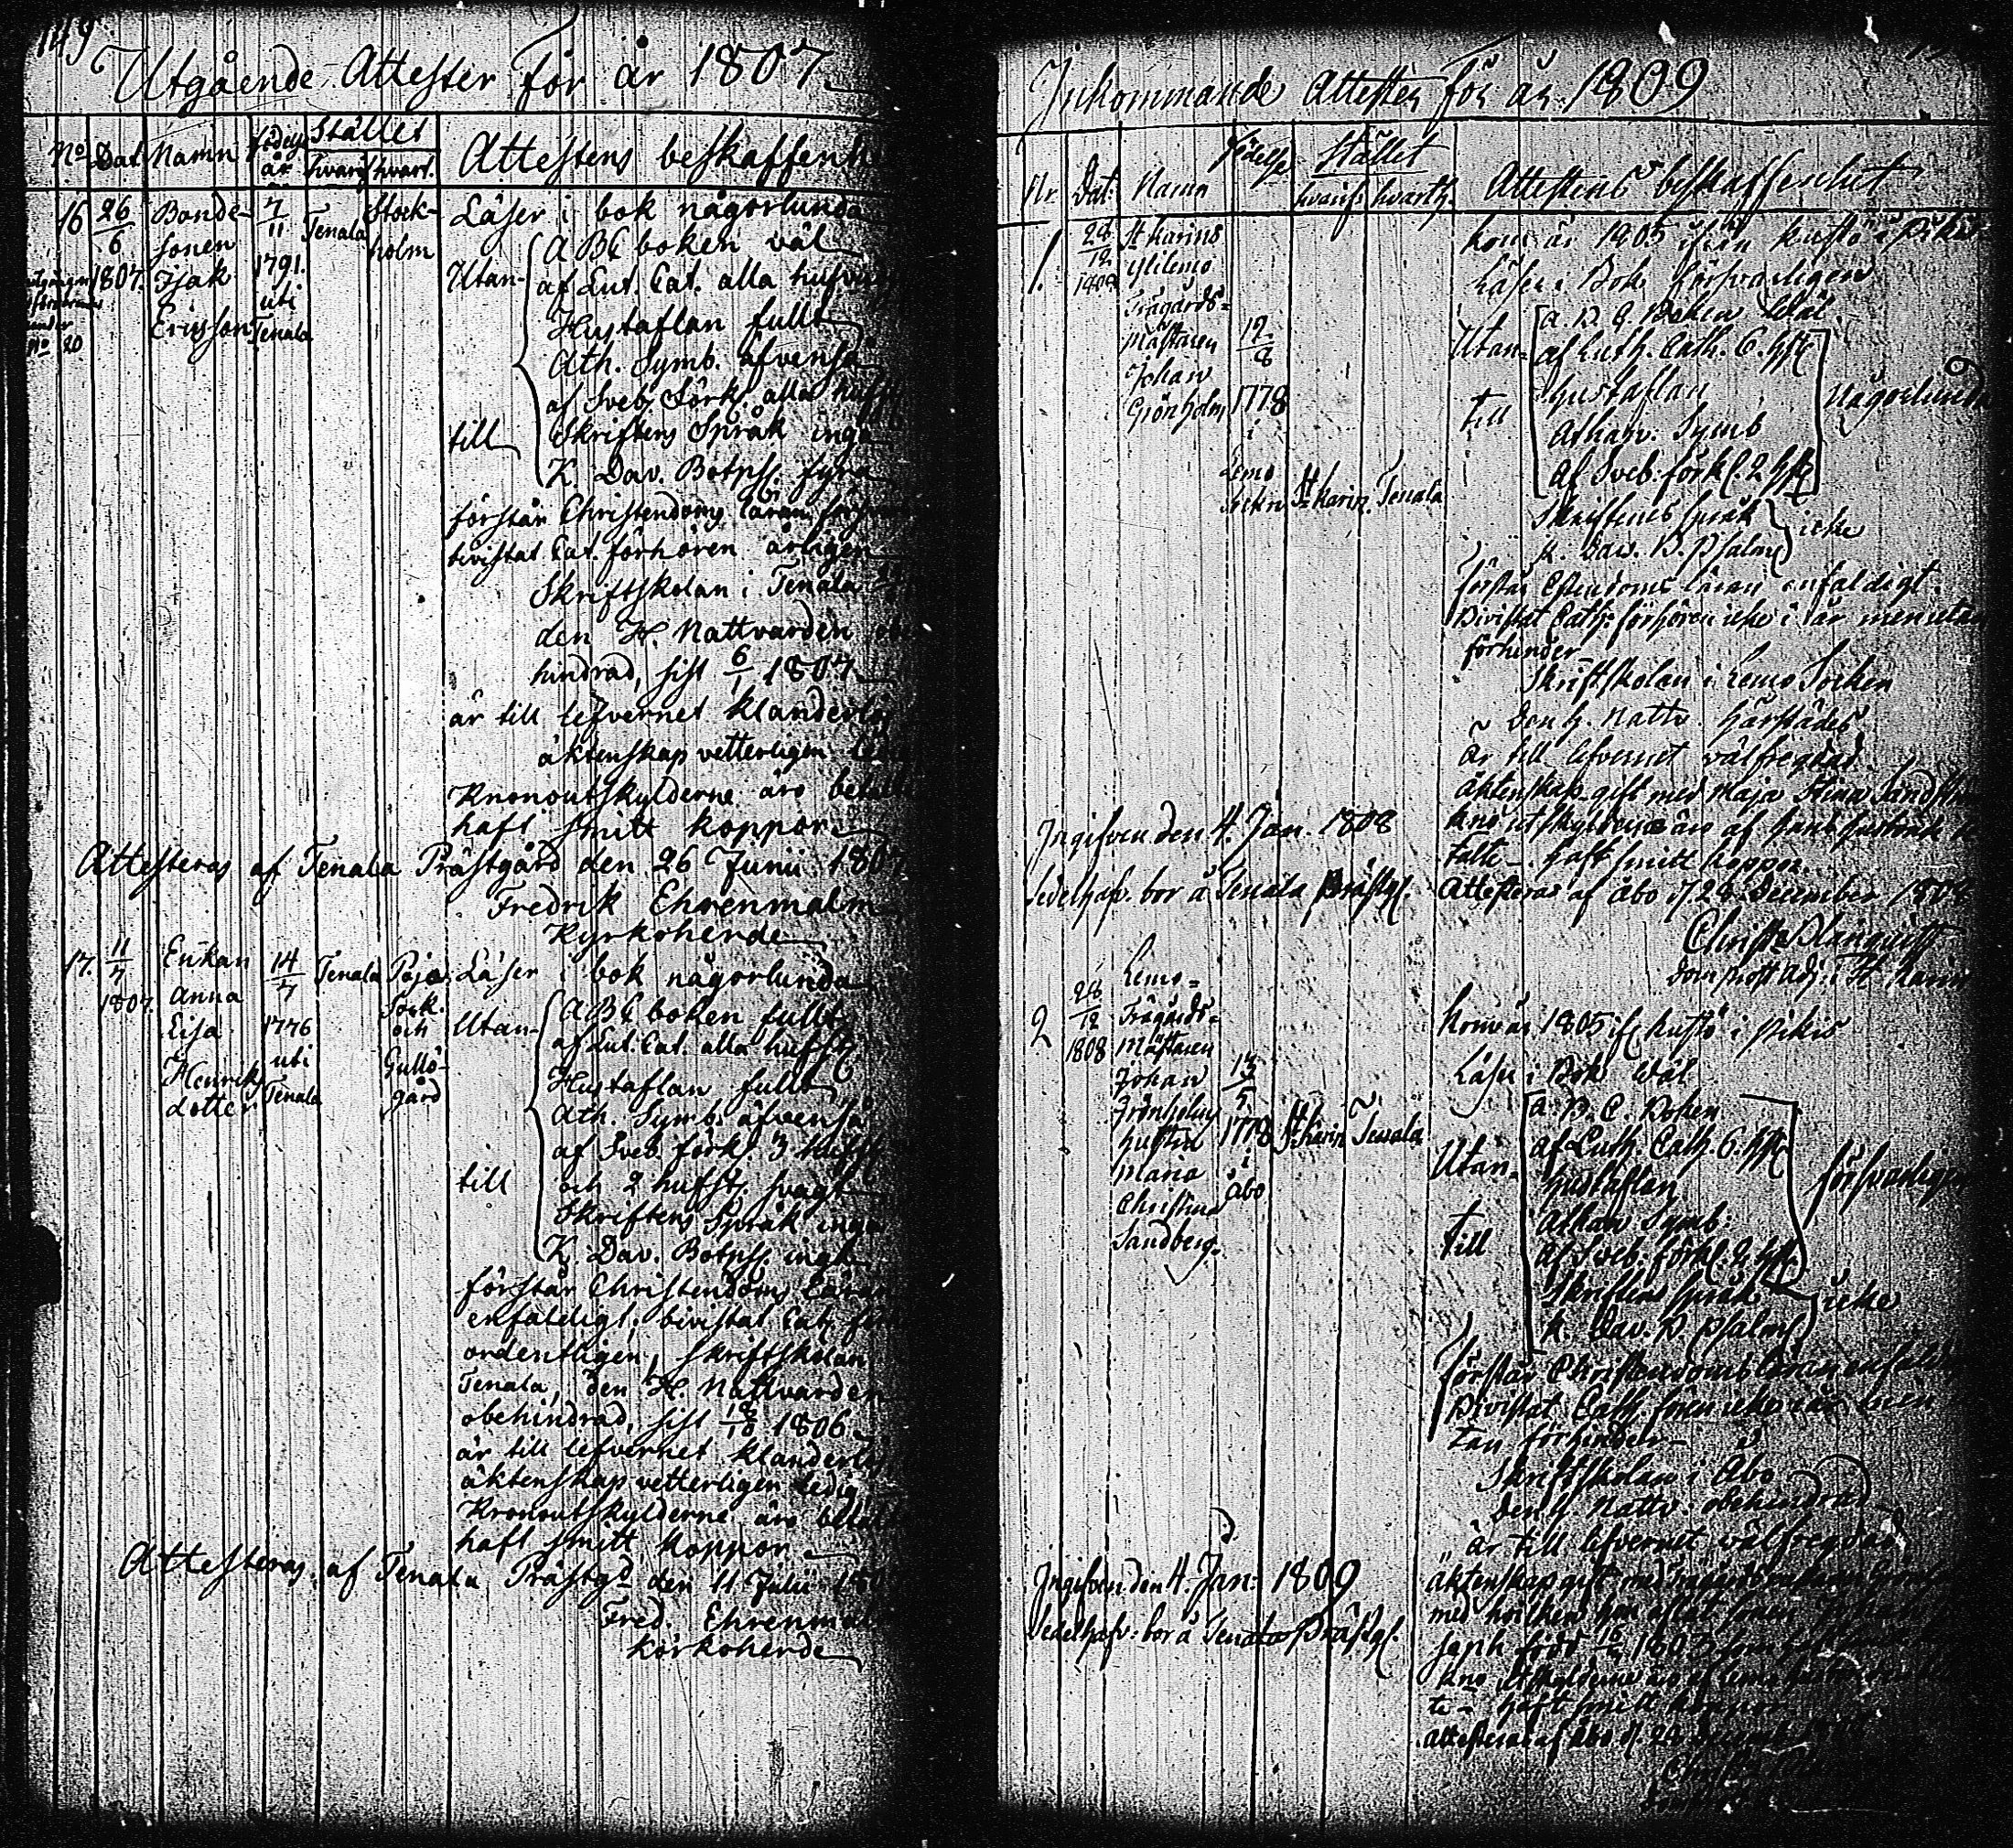 149
Utgående Attester för år 1807
No Dat. Namn födelse år Stället hvarifr. hvart. Attestens beskaffenh
16 26/6 1807. Bonde-
sonen
Isak
Ericsson
7/11
1791.
uti
Tenala
Tenala
Stock-
holm
under
No 20
Läser i bok någorlunda
Utan-
till
A B C boken väl
af Lut. Cat. alla hufvu
Hustaflan fullt
Ath. Symb. äfvenså
af Sveb. förkl. alla hufst
Skriftens Språk inga
K. Dav. Botpss. fyra
förstår Christendoms läran försvar
bivistat Cat. förhören årligen
Skriftskolan i Tenala
den H. Nattvarden obe
hindrad, sist 6/1 1807.
är till lefvernet klanderlös
äktenskap vetterligen led
Kronoutskylderne äro betalte
haft smitt koppor
Attesteras af Tenala Prästgård den 26 Junii 1807
Fredrik Ehrenmalm
Kyrkoherde
17. 11/7 1807.
Enkan
Anna
Lisa
Henriks
dotter
14/7
1776
uti
Tenala
Tenala
Pojo
Sock.
och
Gullö-
gård
Läser i bok någorlunda
Utan-
till
A B C boken fullt
af Lut. Cat. alla hufst
Hustaflan fullt
Ath. Symb. äfvenså
af Sveb. förkl. 3 hufst
och 2 hufst. svagt
Skriftens Språk inga
K. Dav. Botpss. inga
förstår Christendoms Läran
enfaldigt; bivistat Cat. för
ordentligen, skriftskolan
Tenala, den H. Nattvarden
obehindrad, sist 1806
är till lefvernet klanderlös
äktenskap vetterligen ledig
Kronoutskylderne äro betalt
haft smitt koppor
Attesteras af Tenala Prästgd den 11 Julii 180
Fred. Ehrenmal
körkoherde
Inkommande Attester för år 1809
Nr. Dat. Namn Födelse Stället hvarifr. hvarth. Attestens beskaffenhet
1. 28/12 1808
St Karins
Ylilemo
Trägårds-
mästaren
Johan
Grönholm
12/8
1778
i
Lemo
Sokn
St Karin.
Tenala
kom år 1805 ifrån Kustö i Pikis
Läser i Bok försvarligen
Utan-
till
A. B. C. Boken Wäl
af Luth. Cath. 6. hfst
Hustaflan
Athan: Symb
af Sveb. förkl. 2 hfst
någorlunda
Skriftens språk
K. Dav. B. Psalmer
icke
förstår Chrendoms läran enfaldigt
Bivistat Cath: förhören icke i år men utan
förhinder
Skriftskolan i Lemo Socken
Den h. Nattv. härstädes
är till lefvernet wälfregdad
Äktenskap gift med Maja Stina Sandb
Krno utskylderne äro af hans husbonde be
talte - haft smitt koppor.
Attesteras af Åbo d 28 December 1808
Christ. Blanquist
Domprost Adj. i St Karin
Ingifven den 4. Jan. 1808
Sedelhafv. bor å Tenala Prästg.
2 28/12 1808
Lemo-
Trägårds-
Mästaren
Johan
Grönholms
hustru
Maria
Christina
Sandberg
13/5
1778
i
Åbo
St. Karin
Tenala
Kom år 1805 if Kustö i Pikis
Läser i Bok Wäl
Utan-
till
A. B. C. Boken
af Luth. Cath. 6. hfst
Hustaflan
Athan Symb:
af Sveb. förkl. 2 hfst
försvarligen
Skriftens språk
K. Dav. B. psalmer
icke
förstår Christendoms läran enfaldi
Bivistat Cath. fören icke i år men
tan förhinder
Skriftskolan i Åbo
Den h. Nattv. obehindrad
är till lefvernet wälfregdad
Äktenskap gift med
med hvilken hon aflat sonen
född 1803
te - haft smitt koppor
Attesteras af Åbo d. 28 December
Ingifven den 4. Jan: 1809
Sedelhafv: bor å Tenala Prästg.